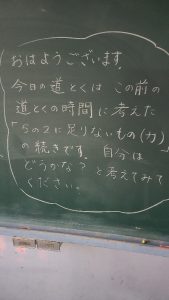 おはようございます。
今日の道とくは この前の
道とくの時間に考えた
「5の2に足りないもの(力)」
の続きです。自分は
どうかな？と考えてみて
ください。